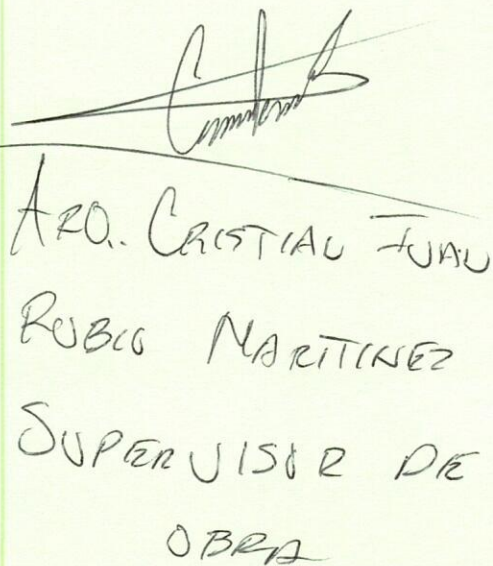 ARQ. CRISTIAN JUAN
RUBIO MARTINEZ
SUPERVISOR DE
OBRA